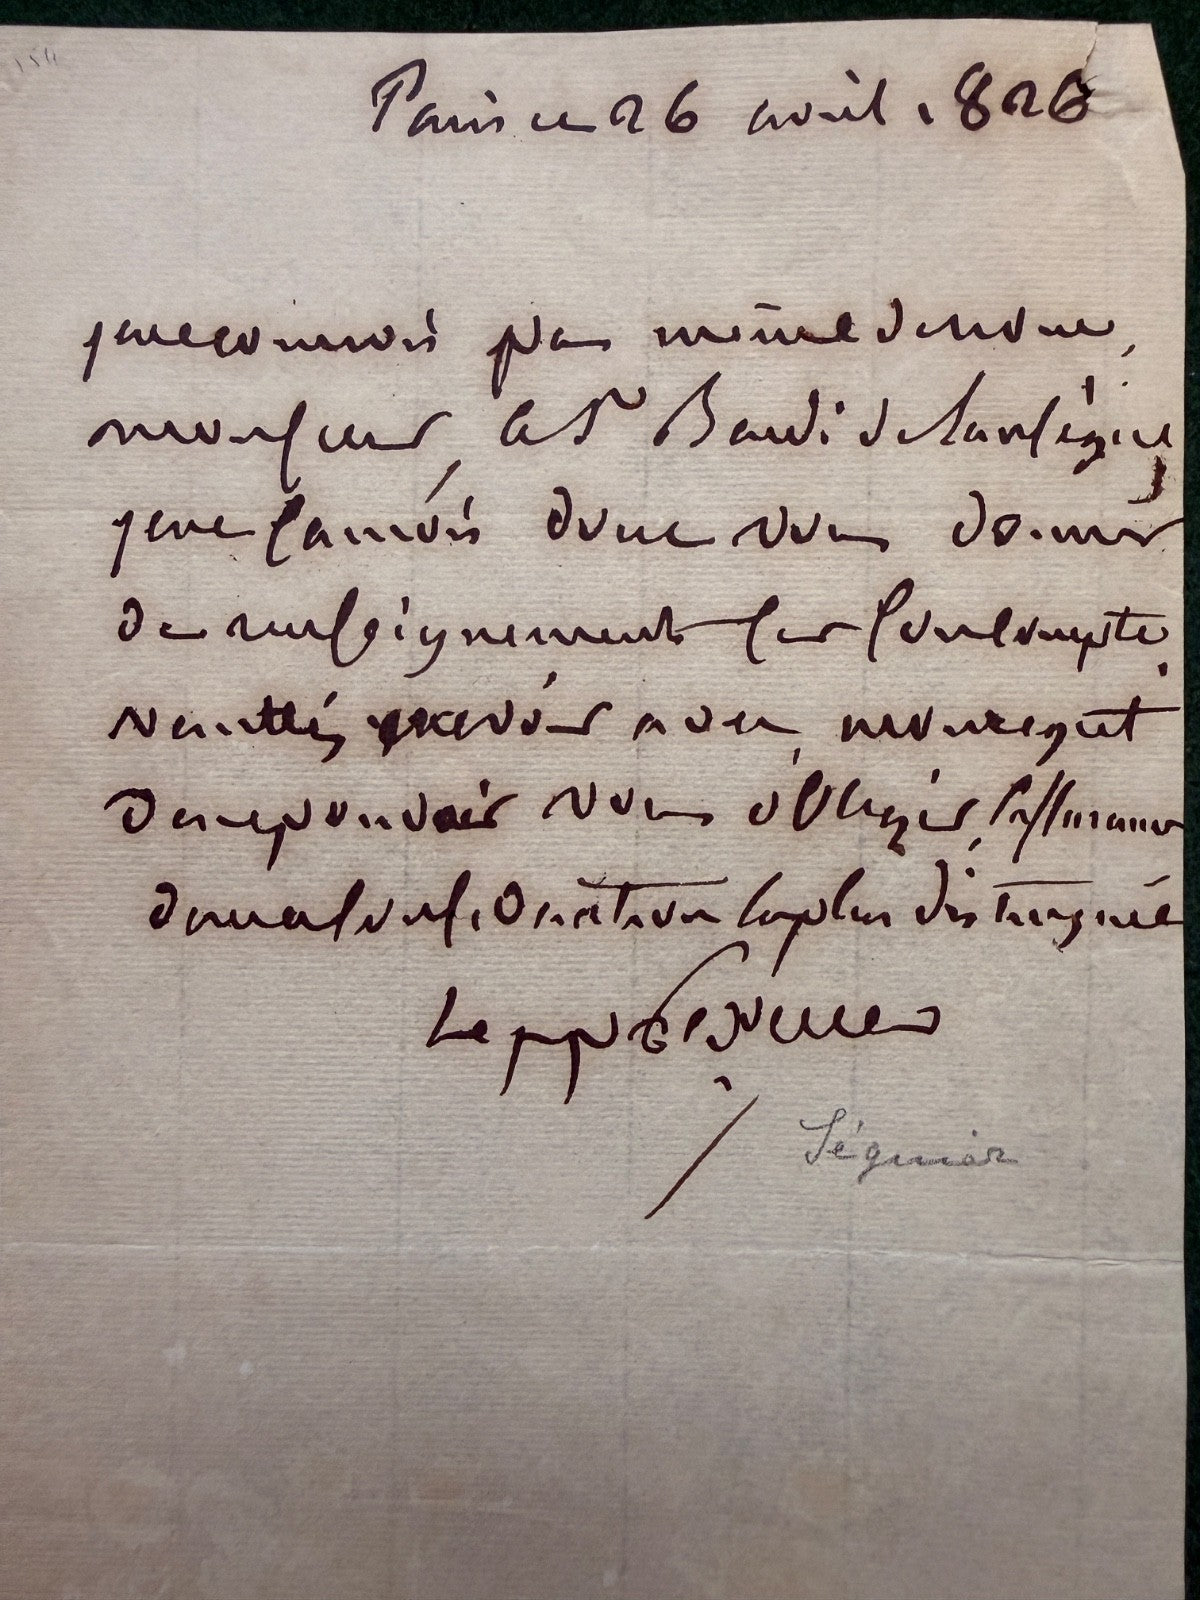 Paris ce 26 avril 1826
je ne connois pas même de nom,
monsieur, le Sr Baudi de
je ne saurois donc vous donner
de renseignements sur son compte,
veuillez recevoir avec mon regret
de ne pouvoir vous obliger, l'assurance
de ma considération la plus distinguée
Le pp Seguier
Séguier